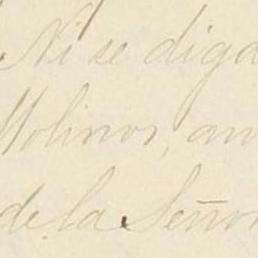 Ni se diga
Molinos, an
de la Señor